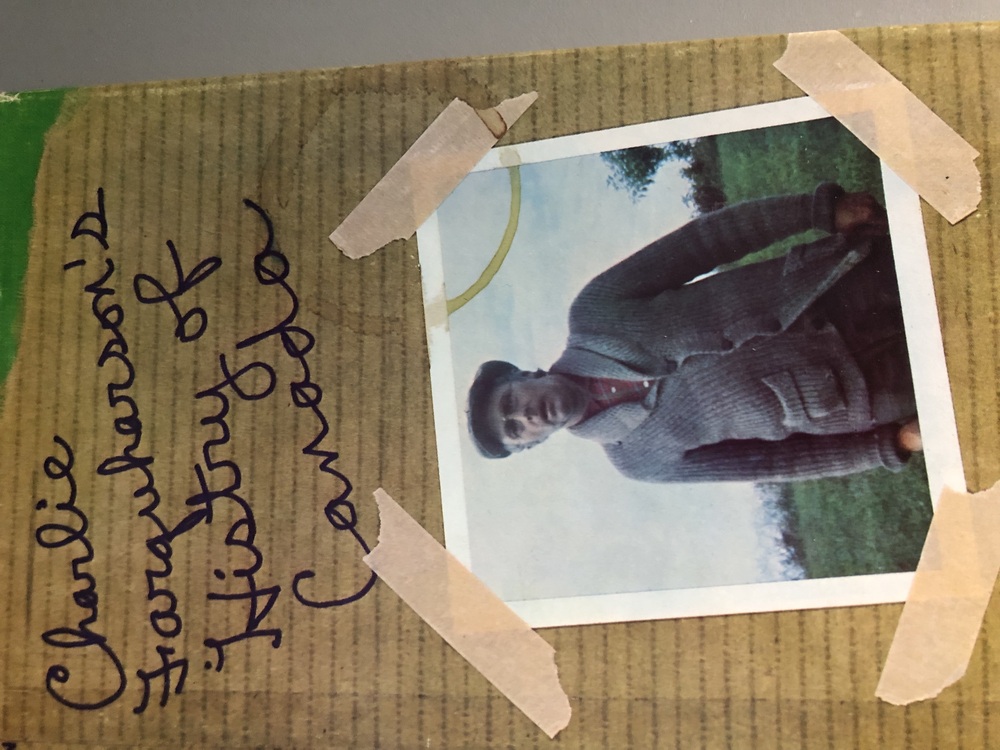 Charlie
Farquharson's
Histry of
Canada